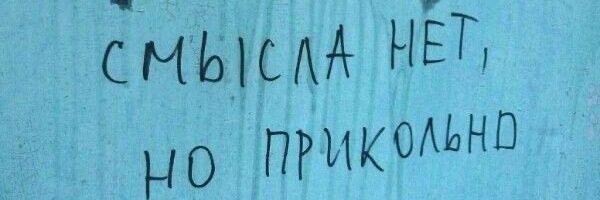 СМЫСЛА НЕТ,
НО ПРИКОЛЬНО